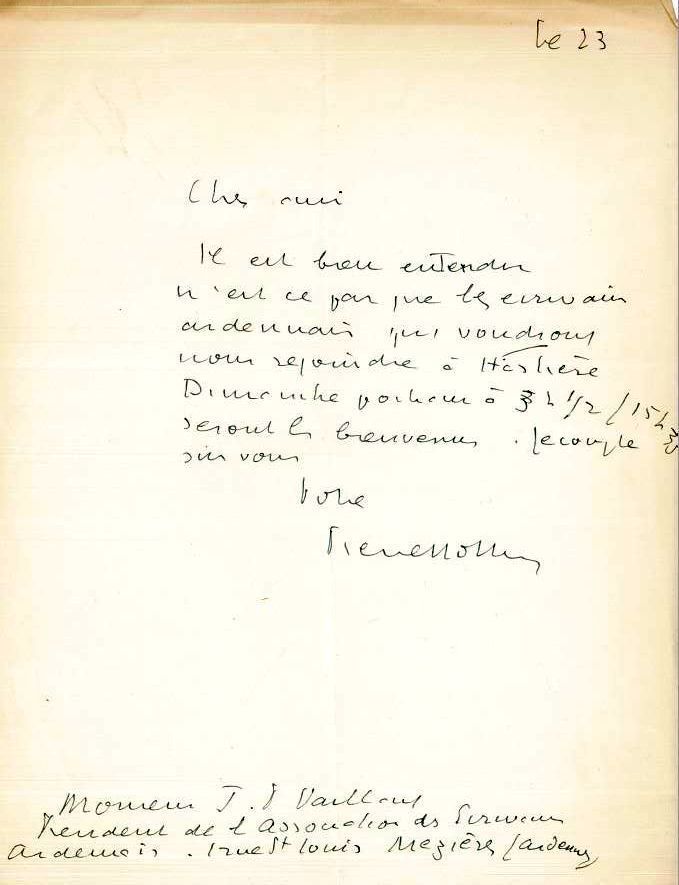 Le 23
Cher ami
Il est bien entendu
n'est ce pas que les écrivains
ardennais qui voudront
nous rejoindre à Hastière
Dimanche prochain à 3 h 1/2 / 15 h 30
seront les bienvenus. Je compte
sur vous
Votre
Monsieur J. P Vaillant
Président de l'Association des Ecrivains
Ardennais. rue St Louis Mezières (Ardennes)